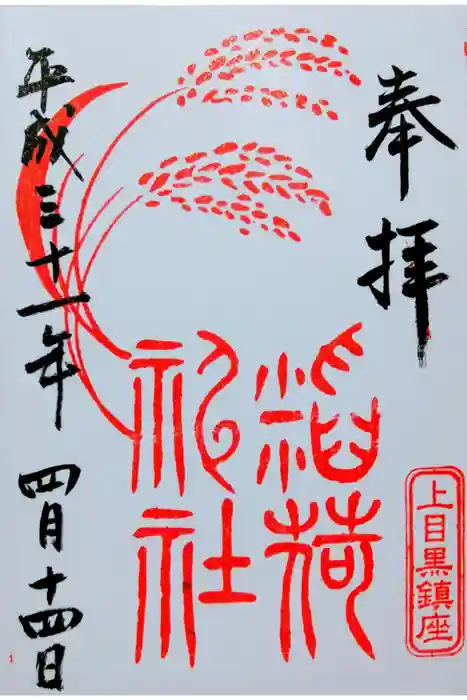 奉拝
上目黒鎮座
稲荷
神社
平成三十一年 四月十四日